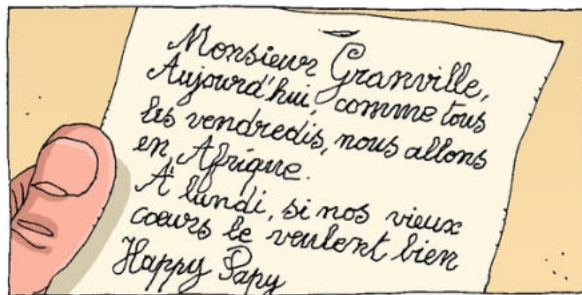 Monsieur Granville,
Aujourd'hui, comme tous
les vendredis, nous allons
en Afrique.
À lundi, si nos vieux
cœurs le veulent bien
Happy Papy